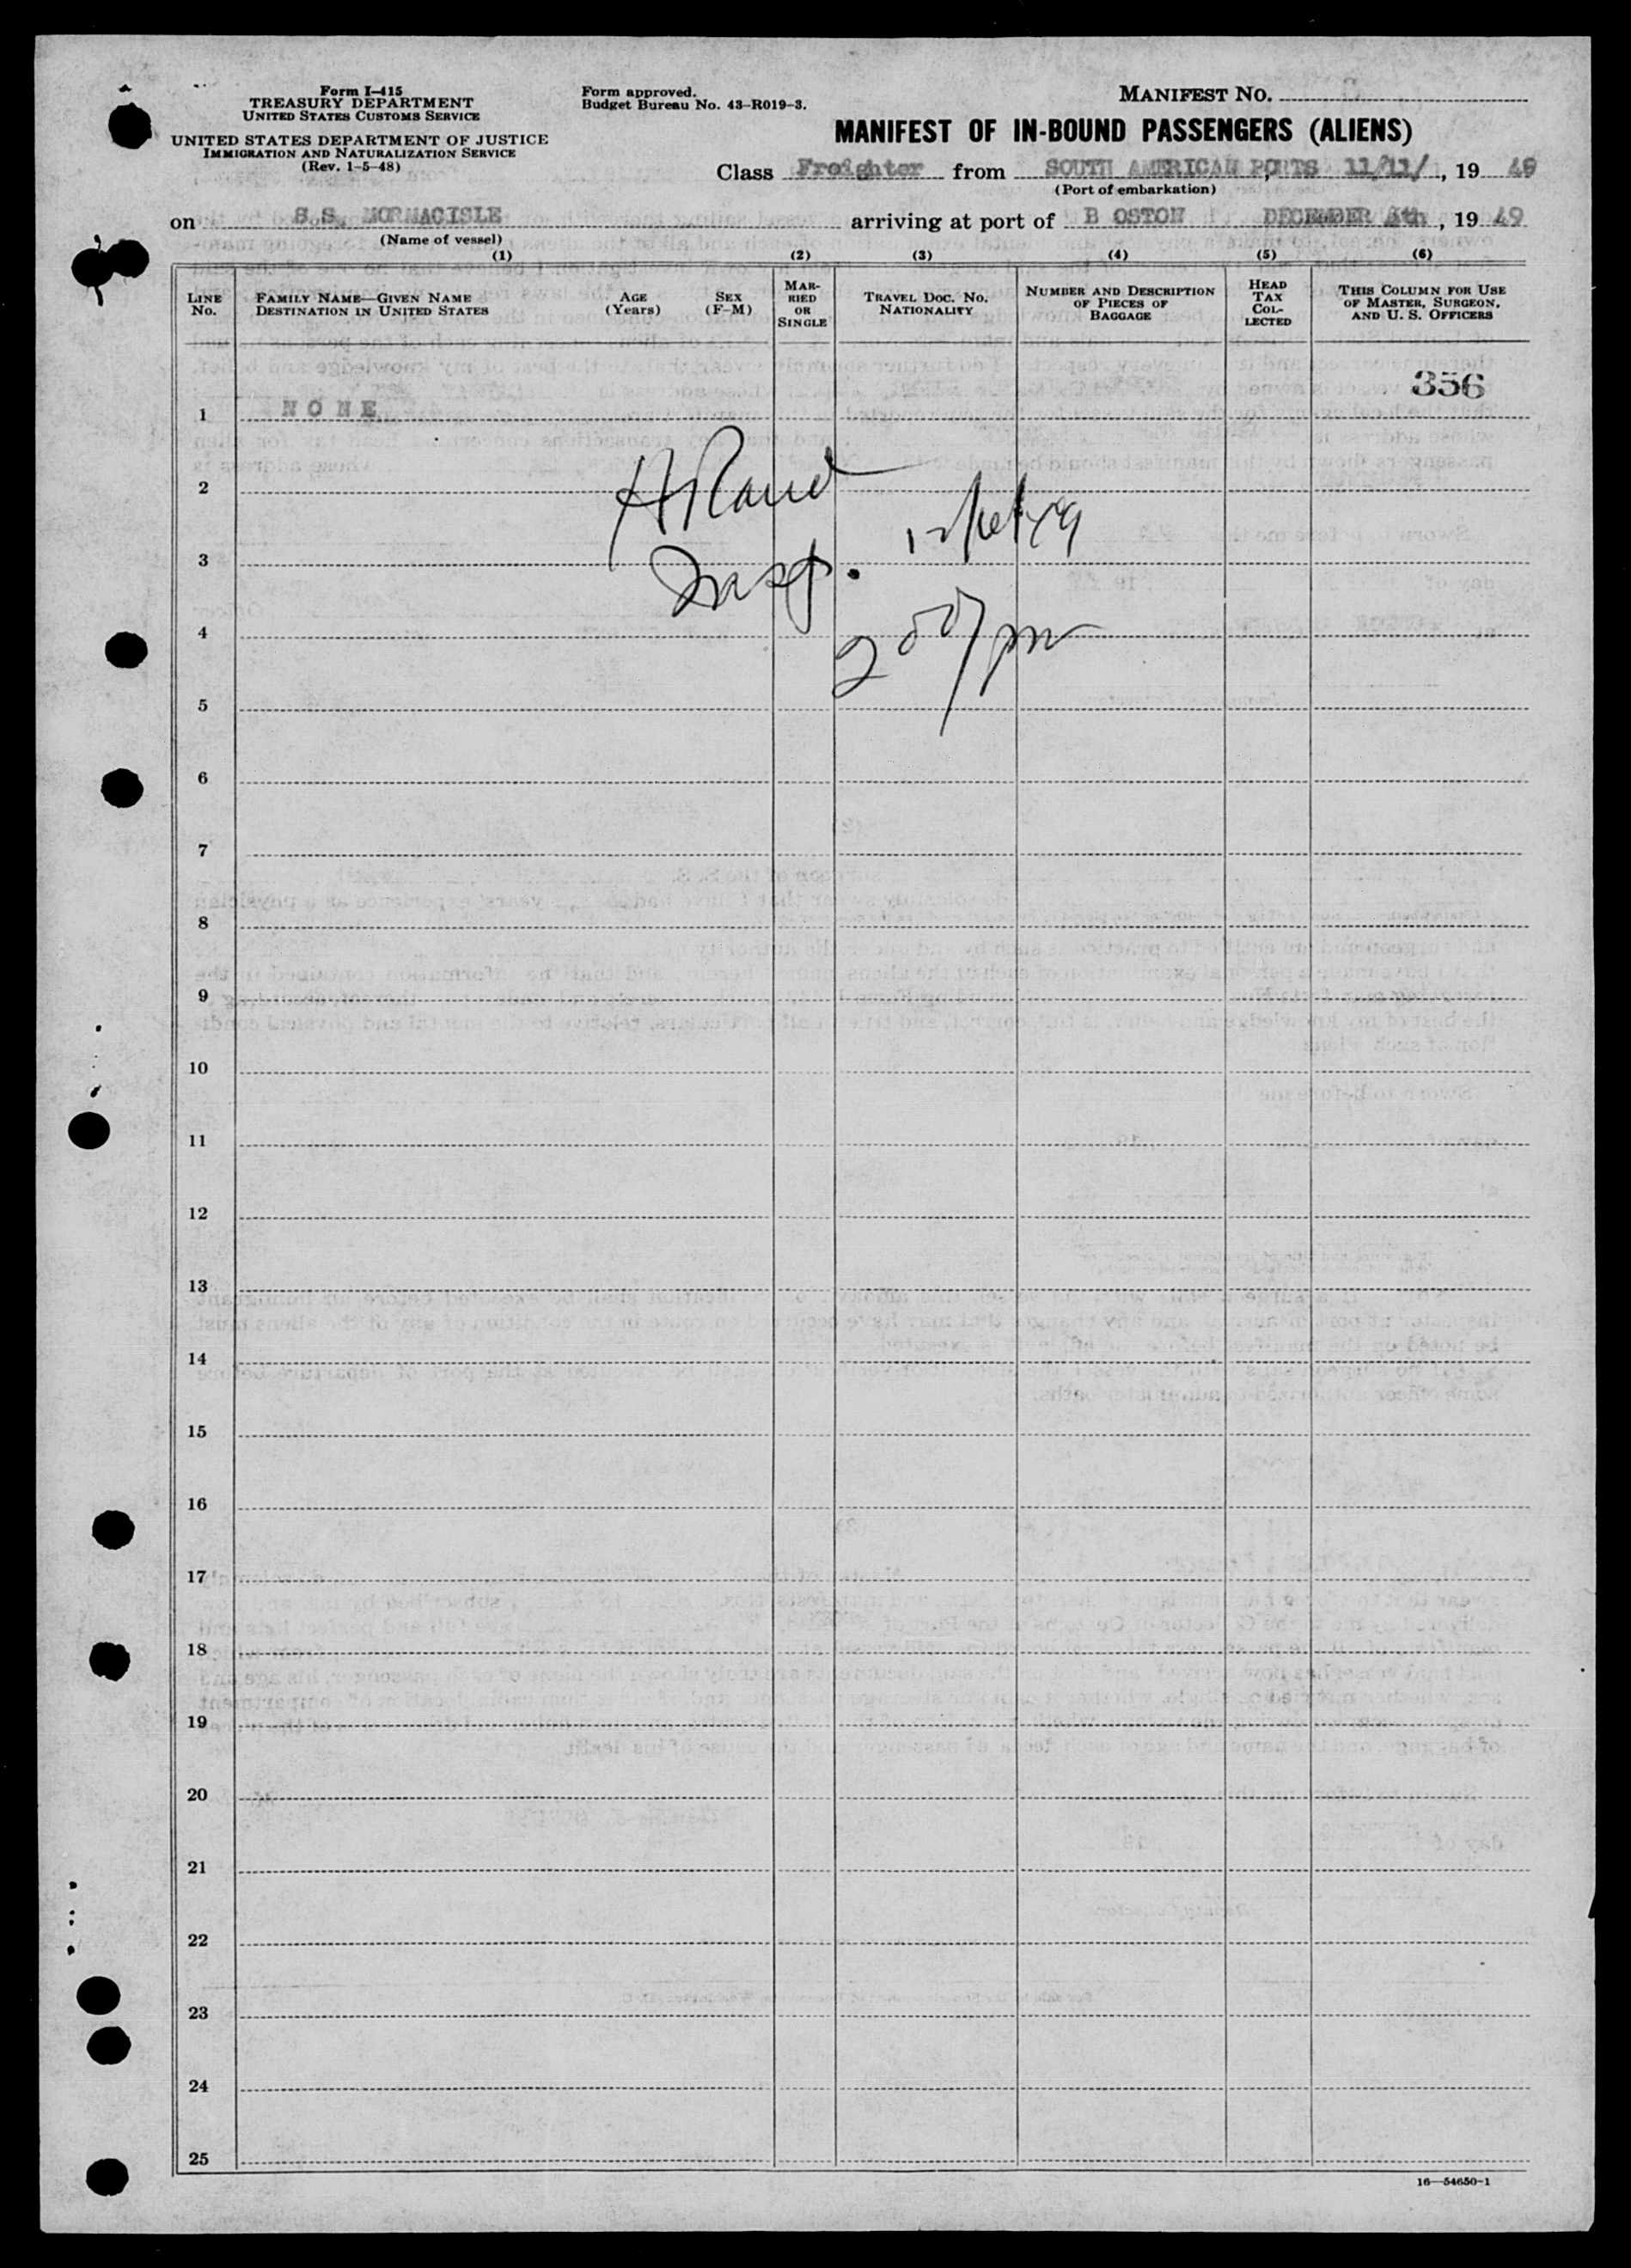 Form I-415
TREASURY DEPARTMENT
UNITED STATES CUSTOMS SERVICE
UNITED STATES DEPARTMENT OF JUSTICE
IMMIGRATION AND NATURALIZATION SERVICE
(Rev. 1-5-48)
Form approved.
Budget Bureau No. 43-R019-3.
MANIFEST NO.
MANIFEST OF IN-BOUND PASSENGERS (ALIENS)
Class Freighter from SOUTH AMERICAN PORTS 11/11/, 19 49
(Port of embarkation)
on S.S. MORMACISLE arriving at port of B OSTON DECEMBER 4th, 19 49
(Name of vessel)
(1) (2) (3) (4) (5) (6)
LINE No.
FAMILY NAME—GIVEN NAME
DESTINATION IN UNITED STATES
AGE (Years)
SEX (F-M)
MARRIED OR SINGLE
TRAVEL DOC. NO.
NATIONALITY
NUMBER AND DESCRIPTION OF PIECES OF BAGGAGE
HEAD TAX COLLECTED
THIS COLUMN FOR USE OF MASTER, SURGEON, AND U. S. OFFICERS
356
1 NONE
2
3
4
pm
5
6
7
8
9
10
11
12
13
14
15
16
17
18
19
20
21
22
23
24
25
16—54650-1